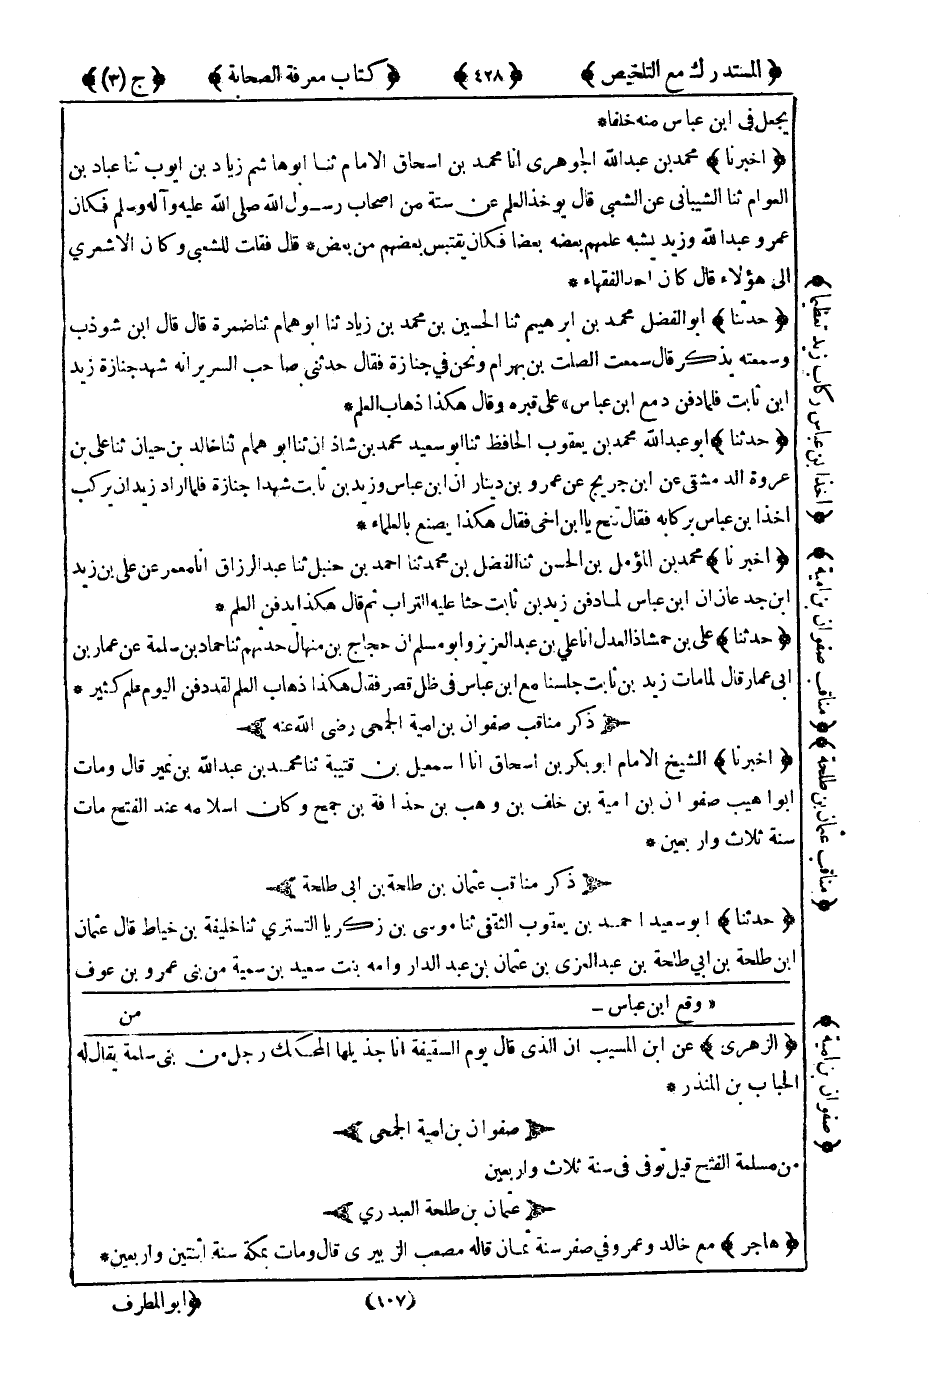 ﴿ المستدرك مع التلخيص ﴾ ﴿ ٤٢٨ ﴾ ﴿ كتاب معرفة الصحابة ﴾ ﴿ ج (٣) ﴾
يجعل فى ابن عباس منه خلفا *
﴿ اخبرنا ﴾ محمد بن عبدالله الجوهرى انا محمد بن اسحاق الامام ثنا ابوهاشم زياد بن ايوب ثنا عباد بن
العوام ثنا الشيبانى عن الشعبى قال يوخذ العلم عن ستة من اصحاب رسول الله صلى الله عليه وآله وسلم فكان
عمر و عبدالله وزيد يشبه علمهم بعضه بعضا فكان يقتبس بعضهم من بعض * قال فقلت للشعبى وكان الاشعري
الى هؤلاء قال كان احد الفقهاء *
﴿ حدثنا ﴾ ابوالفضل محمد بن ابرهيم ثنا الحسين بن محمد بن زياد ثنا ابوهمام ثنا ضمرة قال قال ابن شوذب
وسمعته يذكر قال سمعت الصلت بن بهرام ونحن في جنازة فقال حدثنى صاحب السرير انه شهد جنازة زيد
ابن ثابت فلما دفن دمع ابن عباس » على قبره وقال هكذا ذهاب العلم *
﴿ حدثنا ﴾ ابو عبدالله محمد بن يعقوب الحافظ ثنا ابو سعيد محمد بن شاذان ثنا ابو همام ثنا خالد بن حيان ثنا على بن
عروة الدمشقى عن ابن جريج عن عمرو بن دينار ان ابن عباس وزيد بن ثابت شهدا جنازة فلما اراد زيد ان يركب
اخذ ابن عباس بركابه فقال تنح يا ابن اخى فقال هكذا يصنع بالعلماء *
﴿ اخبرنا ﴾ محمد بن المؤمل بن الحسن ثنا الفضل بن محمد ثنا احمد بن حنبل ثنا عبد الرزاق انا معمر عن على بن زيد
ابن جدعان ان ابن عباس لما دفن زيد بن ثابت حثا عليه التراب ثم قال هكذا يدفن العلم *
﴿ حدثنا ﴾ على بن حمشاذ العدل انا علي بن عبدالعزيز وابو مسلم ان حجاج بن منهال حدثهم ثنا حماد بن سلمة عن عمار بن
ابى عمار قال لما مات زيد بن ثابت جلسنا مع ابن عباس فى ظل قصر فقال هكذا ذهاب العلم لقد دفن اليوم علم كثير *
ذكر مناقب صفوان بن امية الجمحى رضى الله عنه
﴿ اخبرنا ﴾ الشيخ الامام ابو بكر بن اسحاق انا اسمعيل بن قتيبة ثنا محمد بن عبدالله بن نمير قال ومات
ابو اهيب صفوان بن امية بن خلف بن وهب بن حذافة بن جمح وكان اسلامه عند الفتح مات
سنة ثلاث واربعين *
ذكر مناقب عثمان بن طلحة بن ابى طلحة
﴿ حدثنا ﴾ ابو سعيد احمد بن يعقوب الثقفى ثنا موسى بن زكريا التستري ثنا خليفة بن خياط قال عثمان
ابن طلحة بن ابي طلحة بن عبدالعزى بن عثمان بن عبد الدار وامه بنت سعيد بن سمية من بنى عمرو بن عوف
من
« وقع ابن عباس ــ
﴿ الزهرى ﴾ عن ابن المسيب ان الذى قال يوم السقيفة انا جذيلها المحكك رجل من بنى سلمة يقال له
الحباب بن المنذر *
صفوان بن امية الجمحى
من مسلمة الفتح قيل توفى فى سنة ثلاث واربعين
عثمان بن طلحة العبدري
﴿ هاجر ﴾ مع خالد وعمرو في صفر سنة ثمان قاله مصعب الزبيرى قال ومات بمكة سنة اثنتين واربعين *
(١٠٧)
﴿ ابو المطرف
﴿ اخذ ابن عباس ركاب زيد تعظيما ﴾
﴿ مناقب صفوان بن امية ﴾
﴿ مناقب عثمان بن طلحة ﴾
﴿ صفوان بن امية ﴾